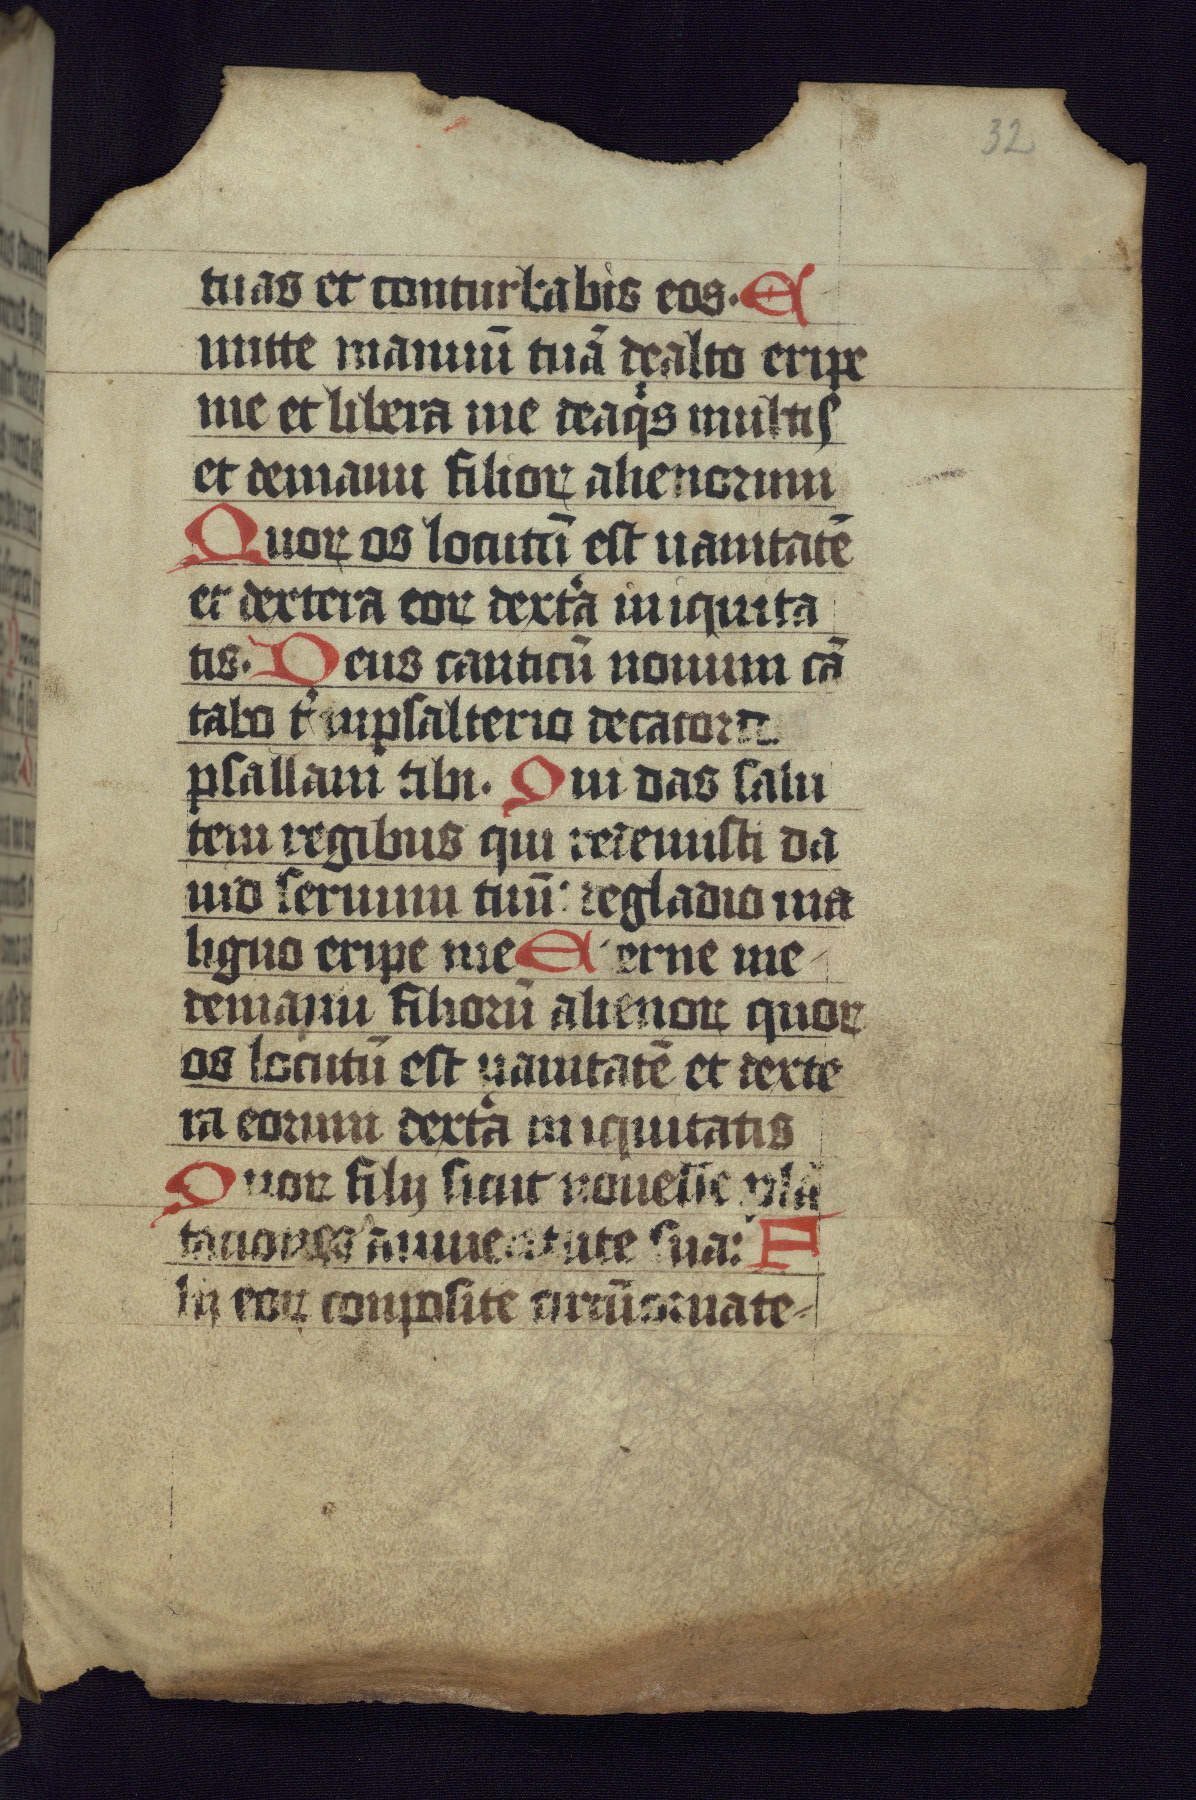 32
tuas et conturbabis eos. E
mitte manuū tuā dealto eripe
me et libera me deaqͥs multis
et demanu filioꝝ alienorum
Quoꝝ os locutū est uanitatē
et dextera eoꝝ dextͣa iniquita
tis. Deus canticū nouum cā
tabo tͥ inpsalterio decacord
psallam tibi. Qui das salu
tem regibus qui redemisti da
uid seruum tuū: degladio ma
ligno eripe me E erne me
demanu filiorū alienoꝝ quoꝝ
os locutū est uanitatē et dexte
ra eorum dextͣa iniquitatis
Quoꝝ filij sicut nouelle plā
taciones aiuuentute sua: F
lij eoꝝ composite circūornate